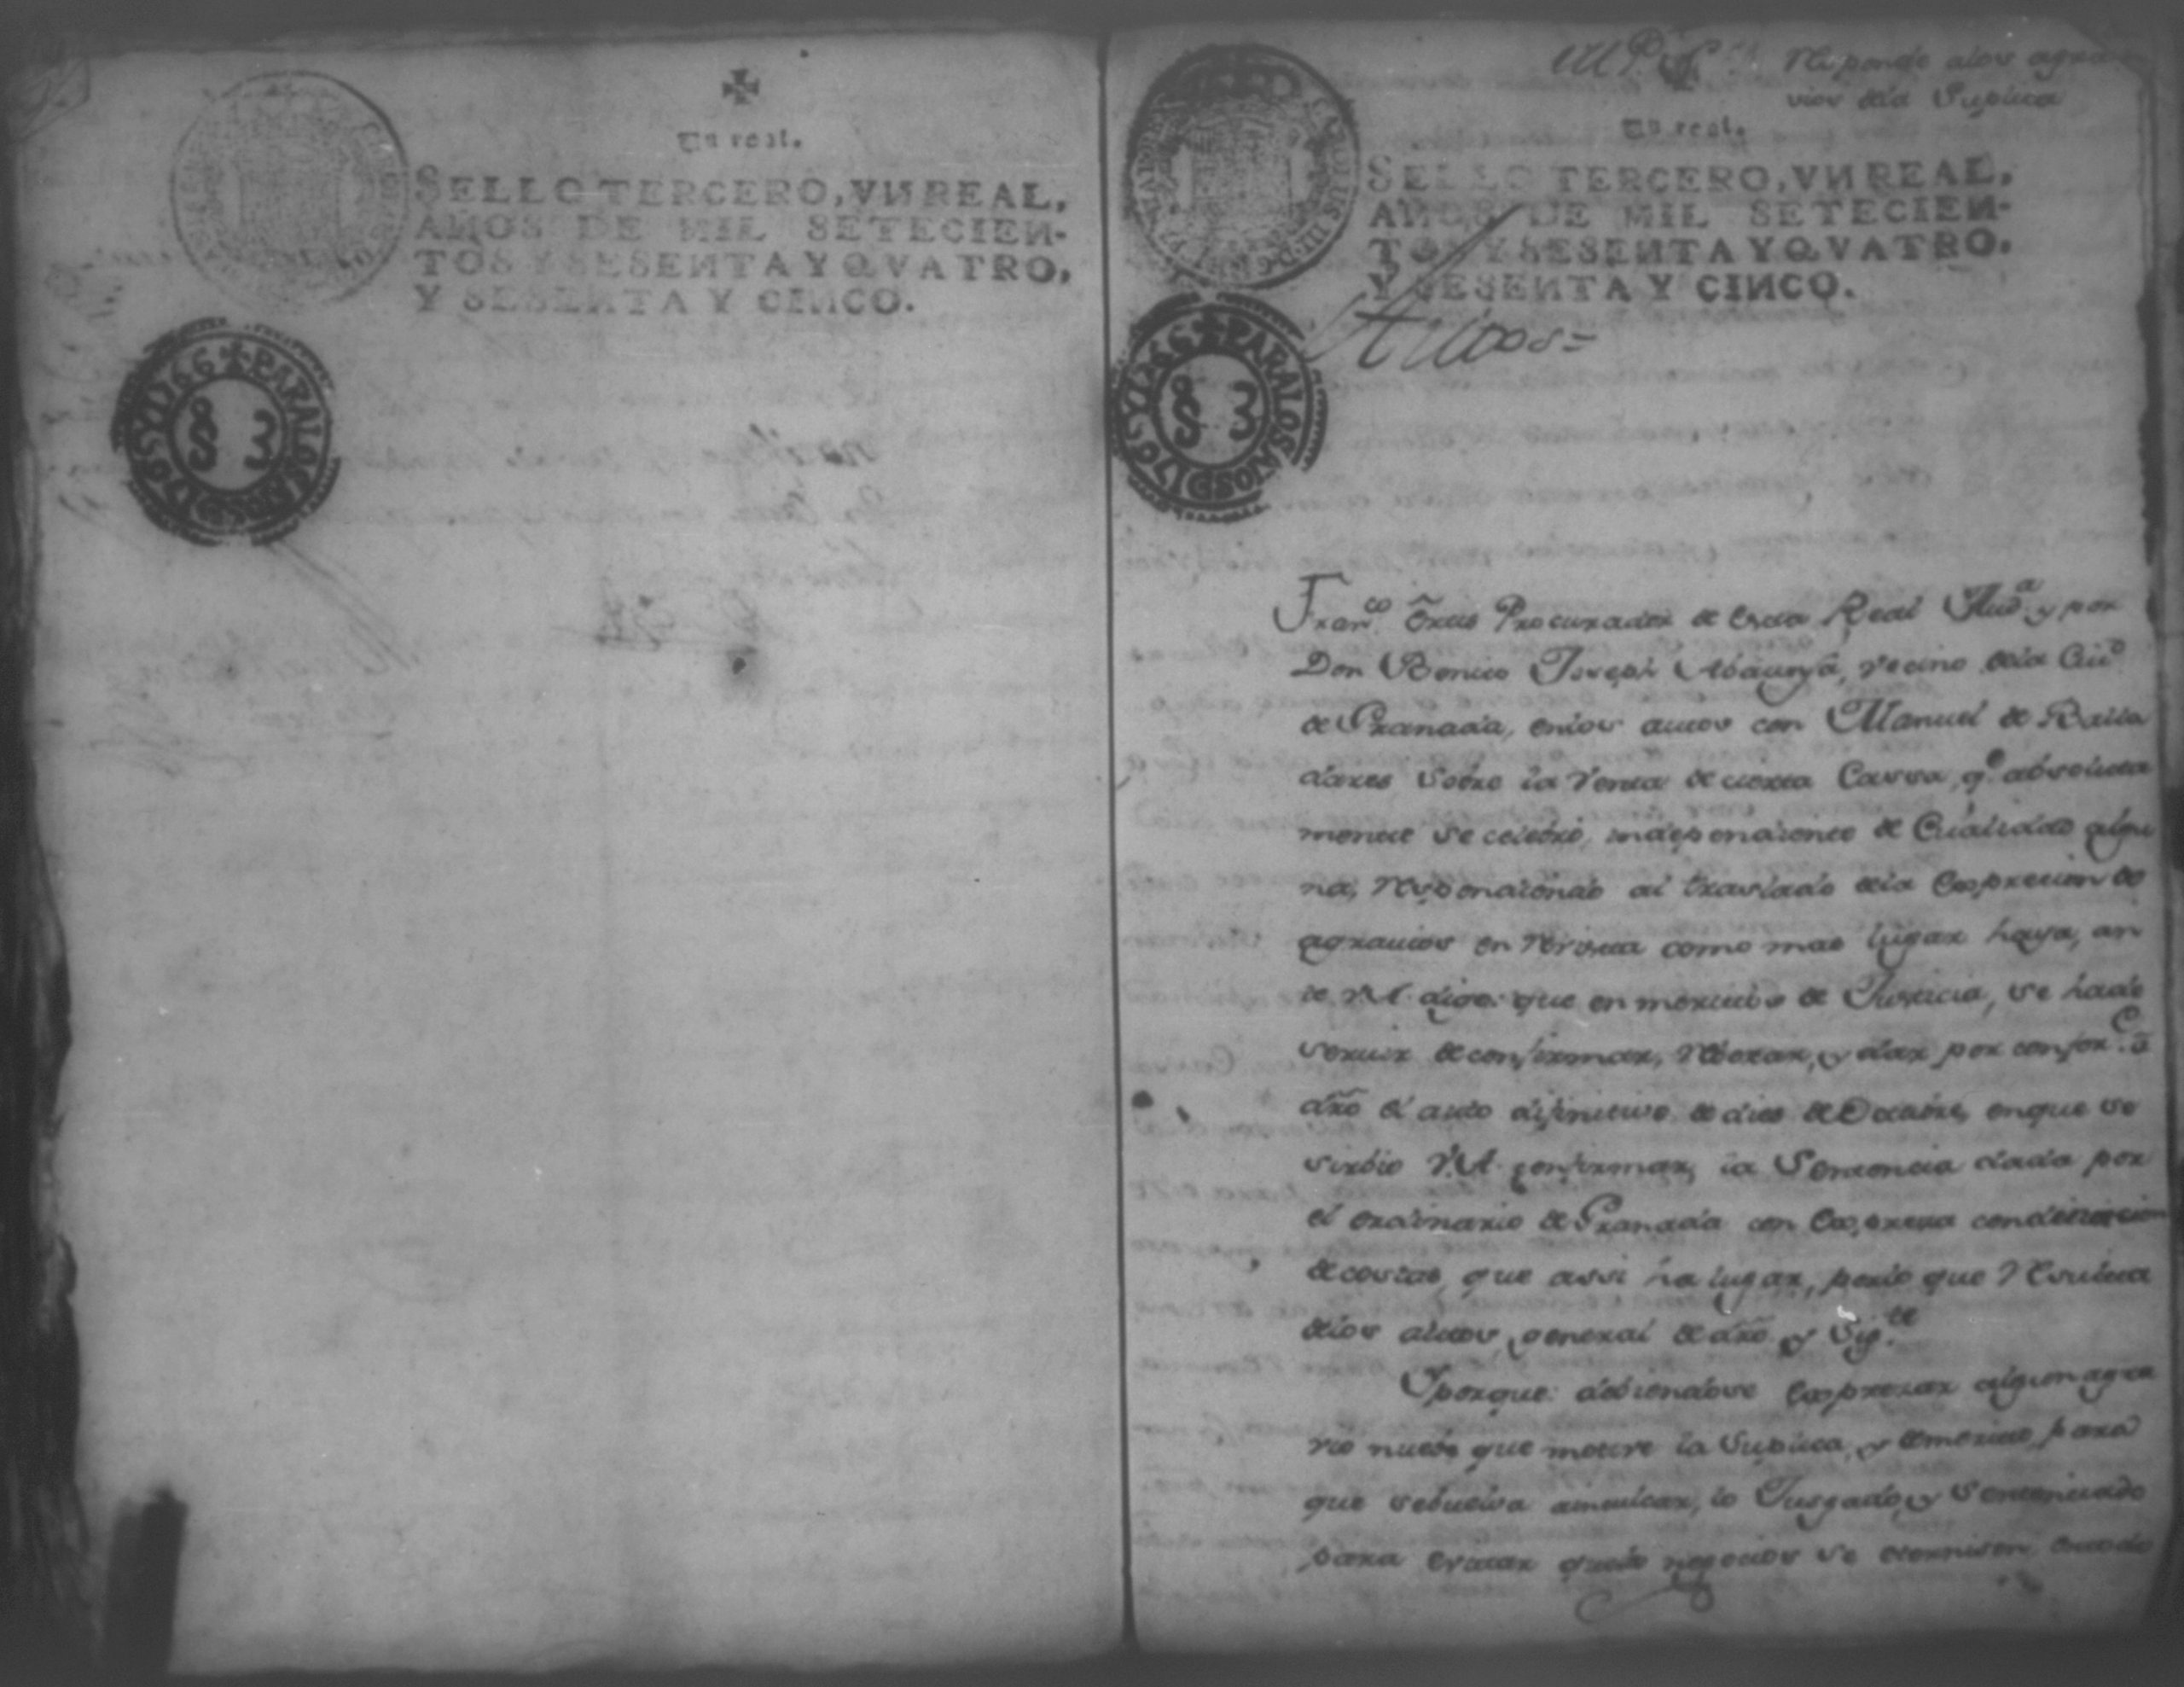 Un real.
SELLO TERCERO, VN REAL,
AÑOS DE MIL SETECIEN-
TOS Y SESENTA Y QVATRO,
Y SESENTA Y CINCO.
PARA LOS AÑOS D 1765 Y 1766
S 3
M.P.S.
Responde alos agra
vios dela Suplica
Un real.
SELLO TERCERO, VN REAL,
AÑOS DE MIL SETECIEN-
TOS Y SESENTA Y QVATRO,
Y SESENTA Y CINCO.
CAROLUS III D G
PARA LOS AÑOS D 1765 Y 1766
S 3
Autos=
Franco Procurador de esta Real Auda y por
Don Benito Joseph Abaunza, vecino dela Ciud
de Granada, enlos autos con Manuel de
sobre la Venta de cierta Cassa, qe absoluta
mente se celebrò, independiente de Cualidad algu
na, respondiendo al traslado dela Exprecion de
agravios en revista como mas lugar haya, an
te V.A. digo: que en meritos de Justicia, se hade
servir de confirmar, y dar por confor.e a
dro el auto difinitivo de dies de Octubre, enque se
sirbio V.A. confirmar, la Sentencia dada por
el ordinario de Granada con Expresa
de costas, que assi ha lugar, por lo que Resulta
delos autos, general de dro y Sig.te
Yporque: debiendose Expresar algun agra
vio nuebo que motive la Suplica, y para
que sebuelva lo Jusgado, y Sentenciado
para evitar quelos negocios se eternisen